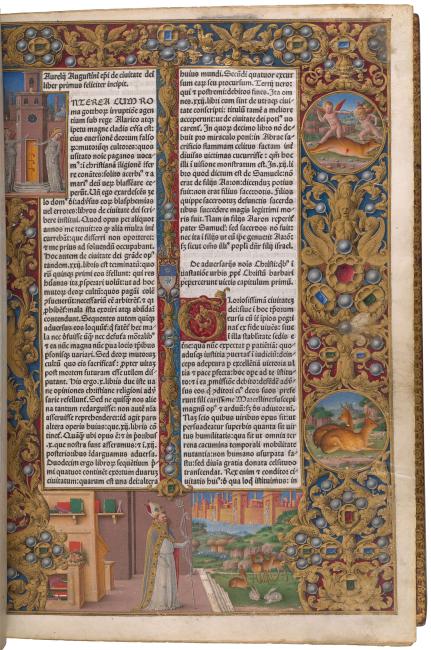 Aurelij Augustini de ciuitate dei
liber primus feliciter incipit.
NTEREA CUM RO
ma gothorum irruptione agen
tium sub rege Alarico atque
impetu magne cladis euersa est:
eius euersionem deorum falso
rum multorumque cultores: quos
usitato noie paganos uoca
mus: in christianam religionem
referre conantes: solito acerbius et a
marius deum uerum blasphemare ce
perunt. Un ego exardescens ze
lo domus dei: aduersus eorum blasphemias
uel errores: libros de ciuitate dei scri
bere institui. Quod opus per aliquot
annos me tenuit: eo quod alia multa in
currebant: que differri non oporteret:
et me prius ad soluendum occupabant.
Hoc autem de ciuitate dei grande opus
tandem .xxij. libris est terminatum: quo
rum quinque primi eos refellunt: qui res
humanas ita prosperari uolunt: ut ad hoc
multorum deorum cultum: quos pagani cole
re consueuerunt: necessarium esse arbitrentur: et quia
prohibentur: mala ista exoriri atque abundare
contendunt. Sequentes autem quinque
aduersus eos loquuntur: qui fatentur hec ma
la nec defuisse unquam: nec defutura mortalibus:
et ea nunc magna nunc parua locis temporibus
personisque uariari. Sed deorum multorum
cultum quo eis sacrificatur: propter uitam
post mortem futuram esse utilem dispu
tant. His ergo .x. libris due iste ua
ne opiniones christiane religioni aduer
sarie refellunt. Sed ne quisquam nos alie
na tantum redarguisse: non autem nostra
asseruisse reprehenderet: id agit pars
altera operis huius: que .xij. libris con
tinetur. Quanquam ubi opus est: et in prioribus
.x. que nostra sunt asseramus: et in .xij.
posterioribus redarguamus aduersa.
Duodecim ergo librorum sequentium pri
mi quatuor continent exortum duarum
ciuitatum: quarum est una dei: altera
huius mundi. Secundi quatuor excur
sum earum seu procursum. Tertij uero:
qui et postremi: debitos fines. Ita om
nes .xxij. libri cum sint de utraque ciui
tate conscripti: titulum tamen a meliore
acceperunt: ut de ciuitate dei potius uo
carentur. In quorum decimo libro non de
buit pro miraculo poni: in Abrae sa
crificio flammam celitus factam inter
diuisas uictimas cucurrisse: quoniam hoc
illi in uisione monstratum est. In .xvij.
libro quod dictum est de Samuele: non
erat de filijs Aaron: dicendum potius
fuit: non erat filius sacerdotis. Filios
quippe sacerdotum defunctis sacerdo
tibus succedere magis legitimi mo
ris fuit. Nam in filijs Aaron reperitur
pater Samuelis: sed sacerdos non fuit:
nec ita in filijs ut eum ipse genuerit Aaron:
sed sicut omnes illius populi dicuntur filij israel.
De aduersarijs nois Christi: quibus in
uastatione urbis propter Christum barbari
pepercerunt uictis capitulum primum.
Gloriosissimam ciuitatem
dei: siue in hoc temporum
cursu cum inter impios peregri
natur ex fide uiuens: siue
in illa stabilitate sedis eter
ne: quam nunc expectat per patientiam: quo
adusque iusticia conuertatur in iudicium: dein
ceps adeptura per excellentiam uictoria ul
tima et pace perfecta: hoc opere ad te institu
to: et mea promissione debito: defendere aduer
sus eos qui conditori eius deos suos prefe
runt fili carissime Marcelline suscepi:
magnum opus et arduum: sed deus adiutor noster est.
Nam scio quibus uiribus opus sit: ut
persuadeatur superbis quanta sit uir
tus humilitatis: qua fit ut omnia terre
na cacumina temporali mobilitate
nutantia: non humano usurpata fa
stu: sed diuina gratia donata celsitudo
transcendat. Rex enim et conditor ci
uitatis huius: de qua loqui instituimus: in